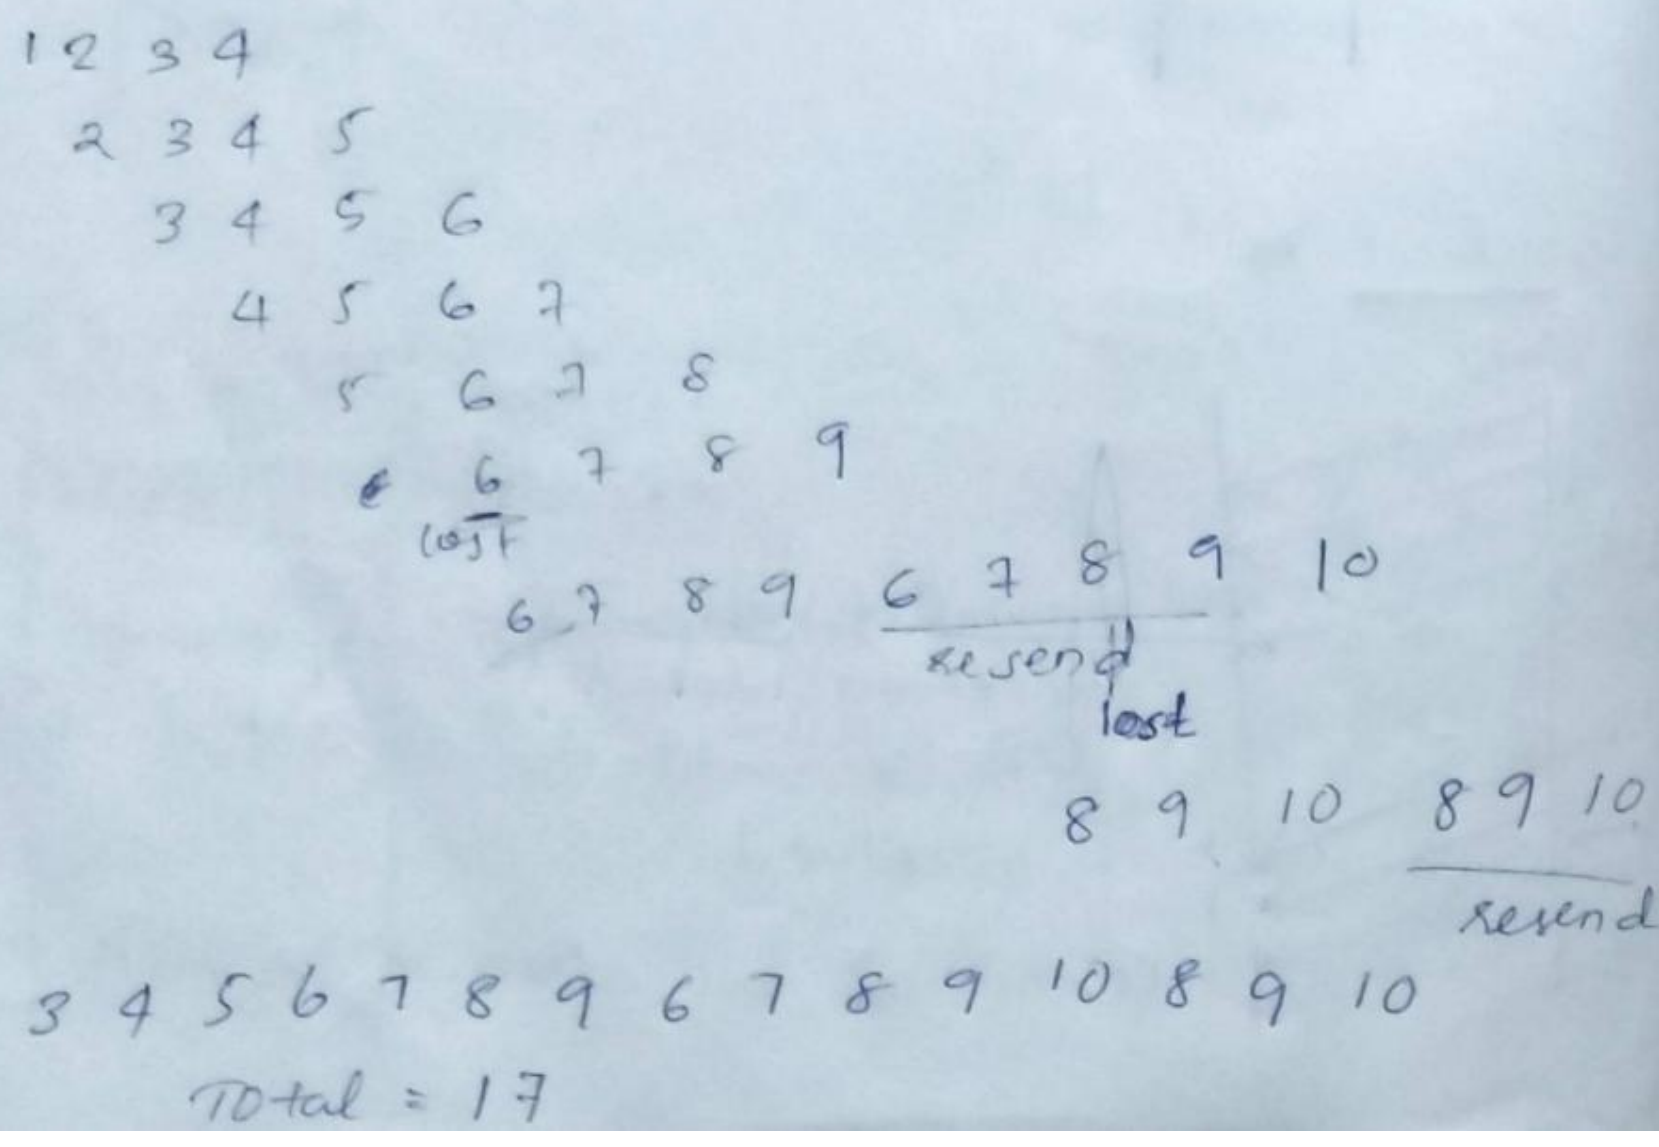 1 2 3 4
2 3 4 5
3 4 5 6
4 5 6 7
5 6 7 8
6 7 8 9
lost
6 7 8 9 6 7 8 9 10
resend
lost
8 9 10 8 9 10
resend
3 4 5 6 7 8 9 6 7 8 9 10 8 9 10
Total = 17